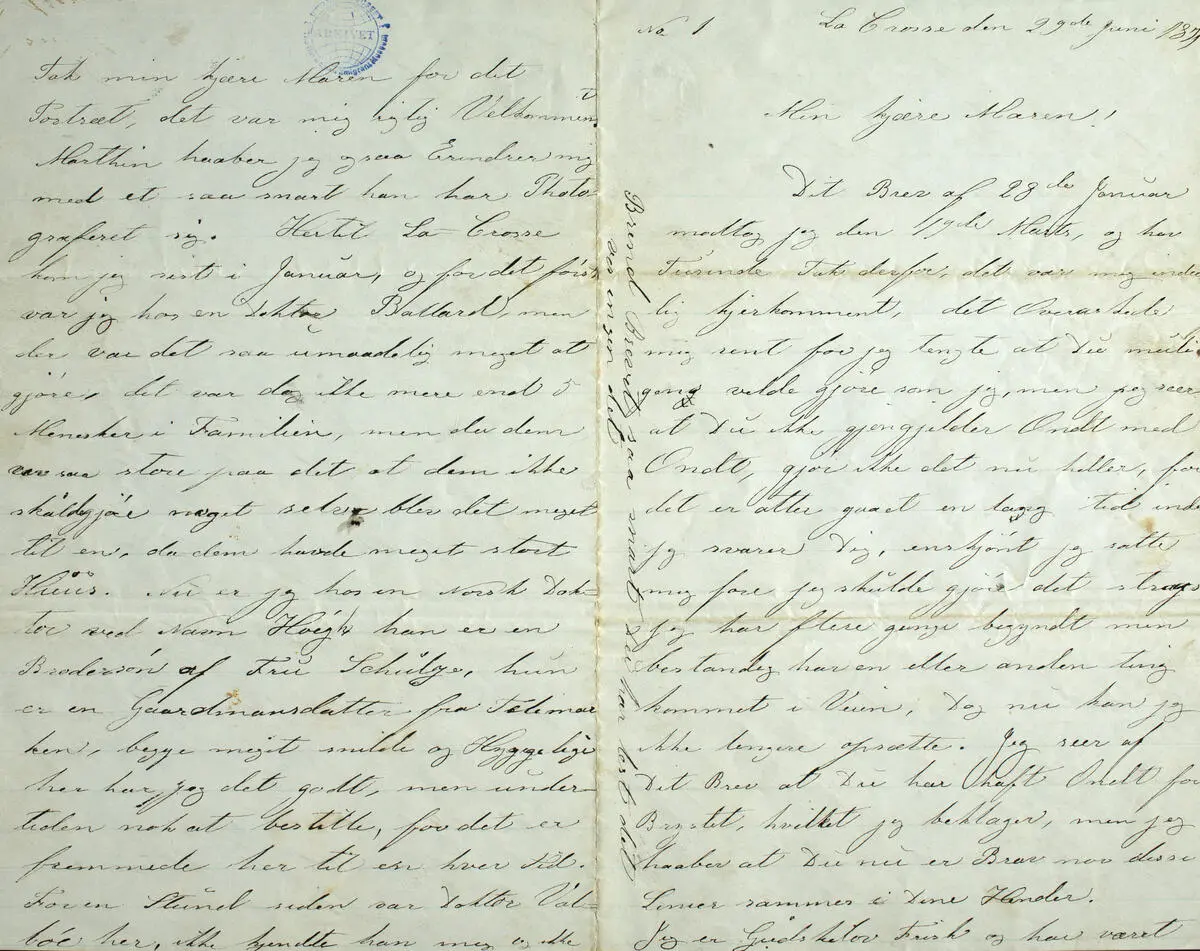 No 1
La Crosse den 29de Juni 187
Min kjære Maren!
Dit Brev af 28de Januar
modtog jeg den 19de Marts, og har
Tusinde Tak derfor, det var mig inder
lig kjerkomment, det Overaskede
mig sent for jeg tengte at Du
gang vilde gjøre som jeg, men jeg seer
at Du ikke gjengjelder Ondt med
Ondt, gjør ikke det nu heller, for
det er atter gaaet en lang tid inden
jg svarer Dig, enskjønt jg satte
mig fore jeg skulde gjøre det strags
Jeg har flere gange begyndt men
bestandig har en eller anden ting
kommet i Veien, Dog nu kan jeg
ikke lengere opsætte. Jeg seer af
Dit Brev at Du har haft Ondt for
Brystet, hvilket jeg beklager, men jeg
haaber at Du nu er Brav nor disse
Linier rammer i Dine Hænder.
Jeg er Gudskelov Frisk og har været
Brend Brevet saa snart Du har lest det
saa ingen det
ARKIVET
Tak min kjære Maren for det
Portræt, det var mig rigtig Velkomment
Marthin haaber jeg ogsaa Erindrer mig
med et saa snart han har Photo
graferet sig. Hertil La-Crosse
kom jeg sist i Januar, og for det først
var jeg hos en Doktor Ballard, men
der var det saa umaadelig meget at
gjøre, det var dog ikke mere end 5
Menesker i Familien, men da dem
var saa store paa det at dem ikke
skuldegjøre noget selv blev det meget
til en, da dem havde meget stort
Huus. Nu er jeg hos en Norsk Dok-
tor ved Navn Høegh han er en
Brodersøn af Fru Schultze, hun
er en Gaardmansdatter fra Telimar
ken, begge meget snilde og Hyggelige
her har jeg det godt, men under-
tiden nok at bestille, for det er
fremmede her til en hver Tid.
For en Stund siden var Doktor Vol-
bóe her, ikke kjendte han meg og ikke